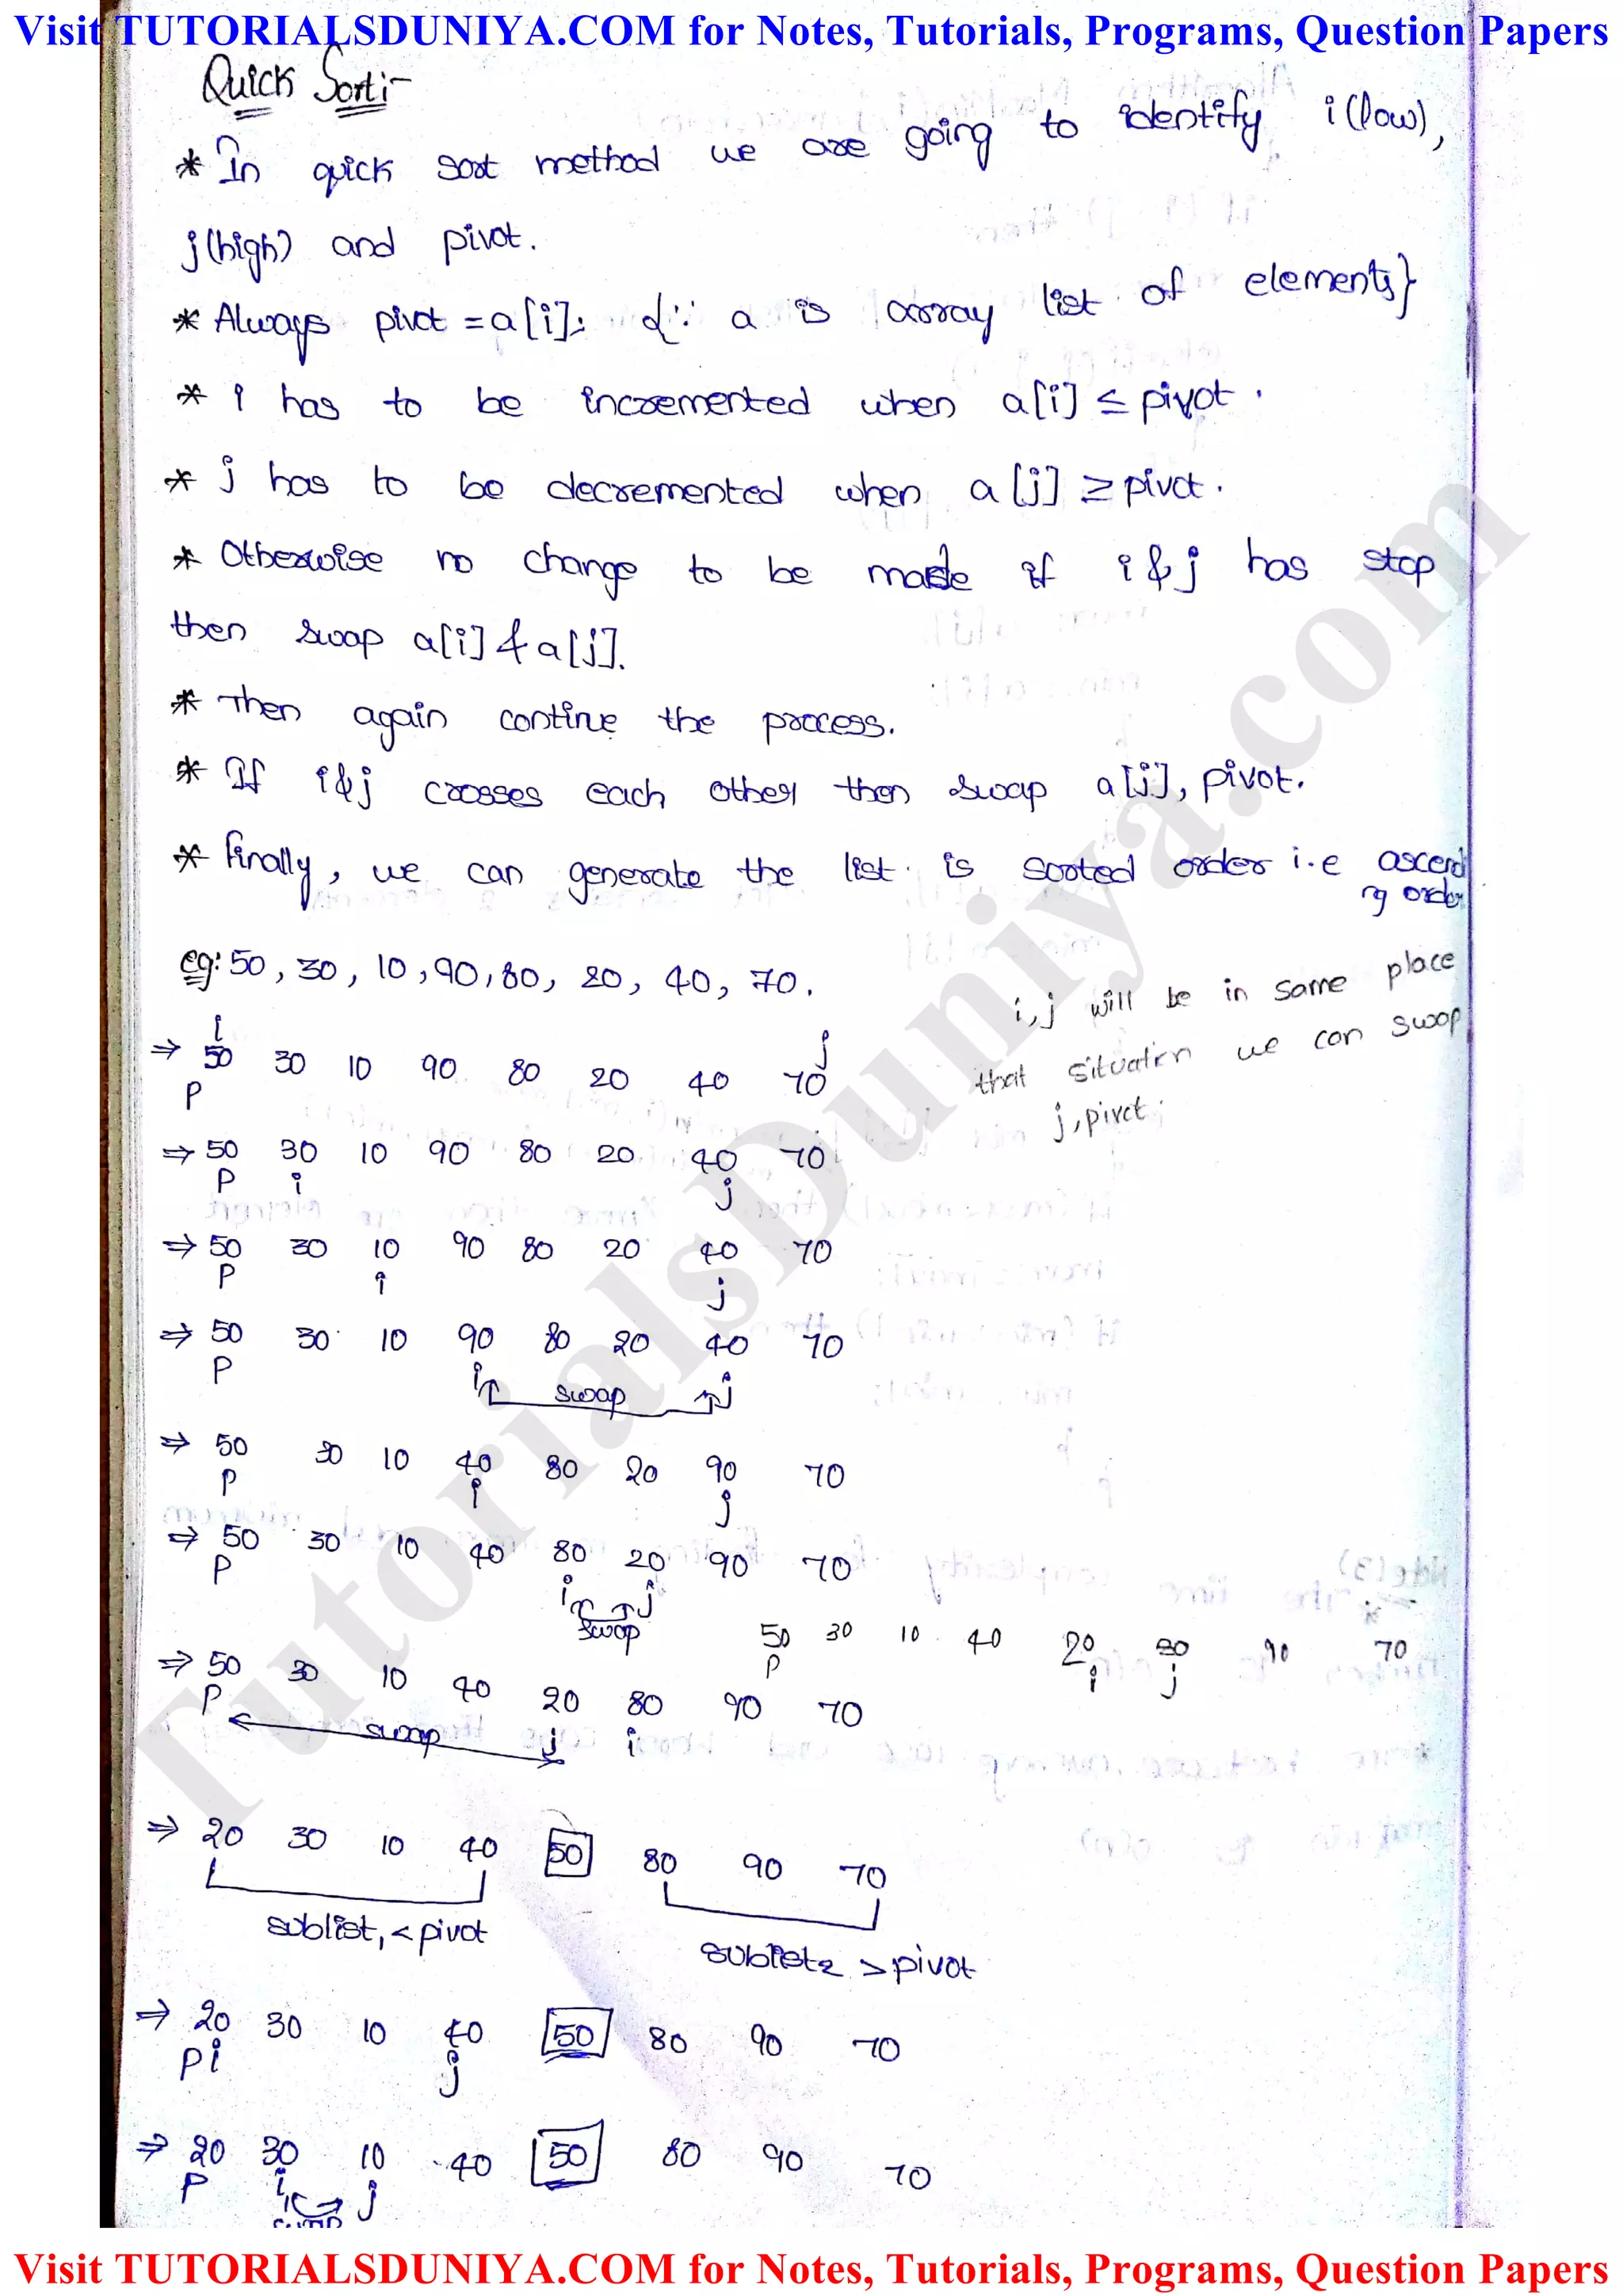 Visit TUTORIALSDUNIYA.COM for Notes, Tutorials, Programs, Question Papers
Quick Sort:-
* In quick sort method we are going to identify i(low),
j(high) and pivot.
* Always pivot = a[i]; {∵ a is array list of elements}
* i has to be incremented when a[i] ≤ pivot.
* j has to be decremented when a[j] ≥ pivot.
* Otherwise no change to be made if i & j has stop
then swap a[i] & a[j].
* Then again continue the process.
* If i & j crosses each other then swap a[j], pivot.
* Finally, we can generate the list is sorted order i.e ascend
ng order
eg: 50, 30, 10, 90, 80, 20, 40, 70.
i,j will be in same place
that situation we can swap
j, pivot.
i j
⇒ 50 30 10 90 80 20 40 70
P
⇒ 50 30 10 90 80 20 40 70
P i j
⇒ 50 30 10 90 80 20 40 70
P i j
⇒ 50 30 10 90 80 20 40 70
P i swap j
⇒ 50 30 10 40 80 20 90 70
P i j
⇒ 50 30 10 40 80 20 90 70
P i j
swap
50 30 10 40 20 80 90 70
P i j
⇒ 50 30 10 40 20 80 90 70
P swap j i
⇒ 20 30 10 40 50 80 90 70
sublist1 < pivot
sublist2 > pivot
⇒ 20 30 10 40 50 80 90 70
P i j
⇒ 20 30 10 40 50 80 90 70
P i j
swap
TutorialsDuniya.com
Visit TUTORIALSDUNIYA.COM for Notes, Tutorials, Programs, Question Papers